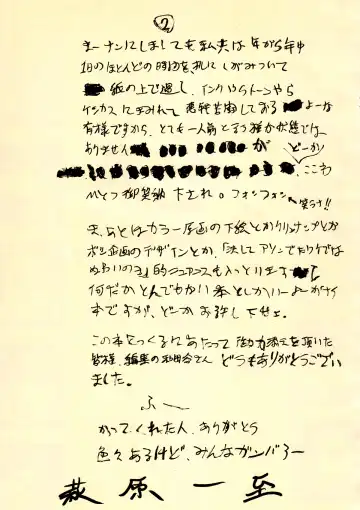 ②
まーナンにしましても私共は年がら年中
1日のほとんどの時間を机にしがみついて
紙の上で過し、インクやらトーンやら
ケシカスにまみれて悪戦苦闘しておるよーな
有様ですから、とても一人前とゆう確かな態では
ありません が どーか
ここわ
ひとつ御笑納下され。フォンフォン ←笑う!!
ま、あとはカラー原画の下絵とかクリンナップとか
ボツ企画のデザインとか、「決してアソンでたワケでは
ぬらいのョ」的ニュアンスも入っとります
何だかとんでもない本としかいーよーがナイ
本ですが、どーかお許し下せェ。
この本をつくるにあたって御力添えを頂いた
皆様、編集の さん どうもありがとうござい
ました。
ふー
かってくれた人、ありがとう
色々あるけど、みんなガンバろー
萩原一至